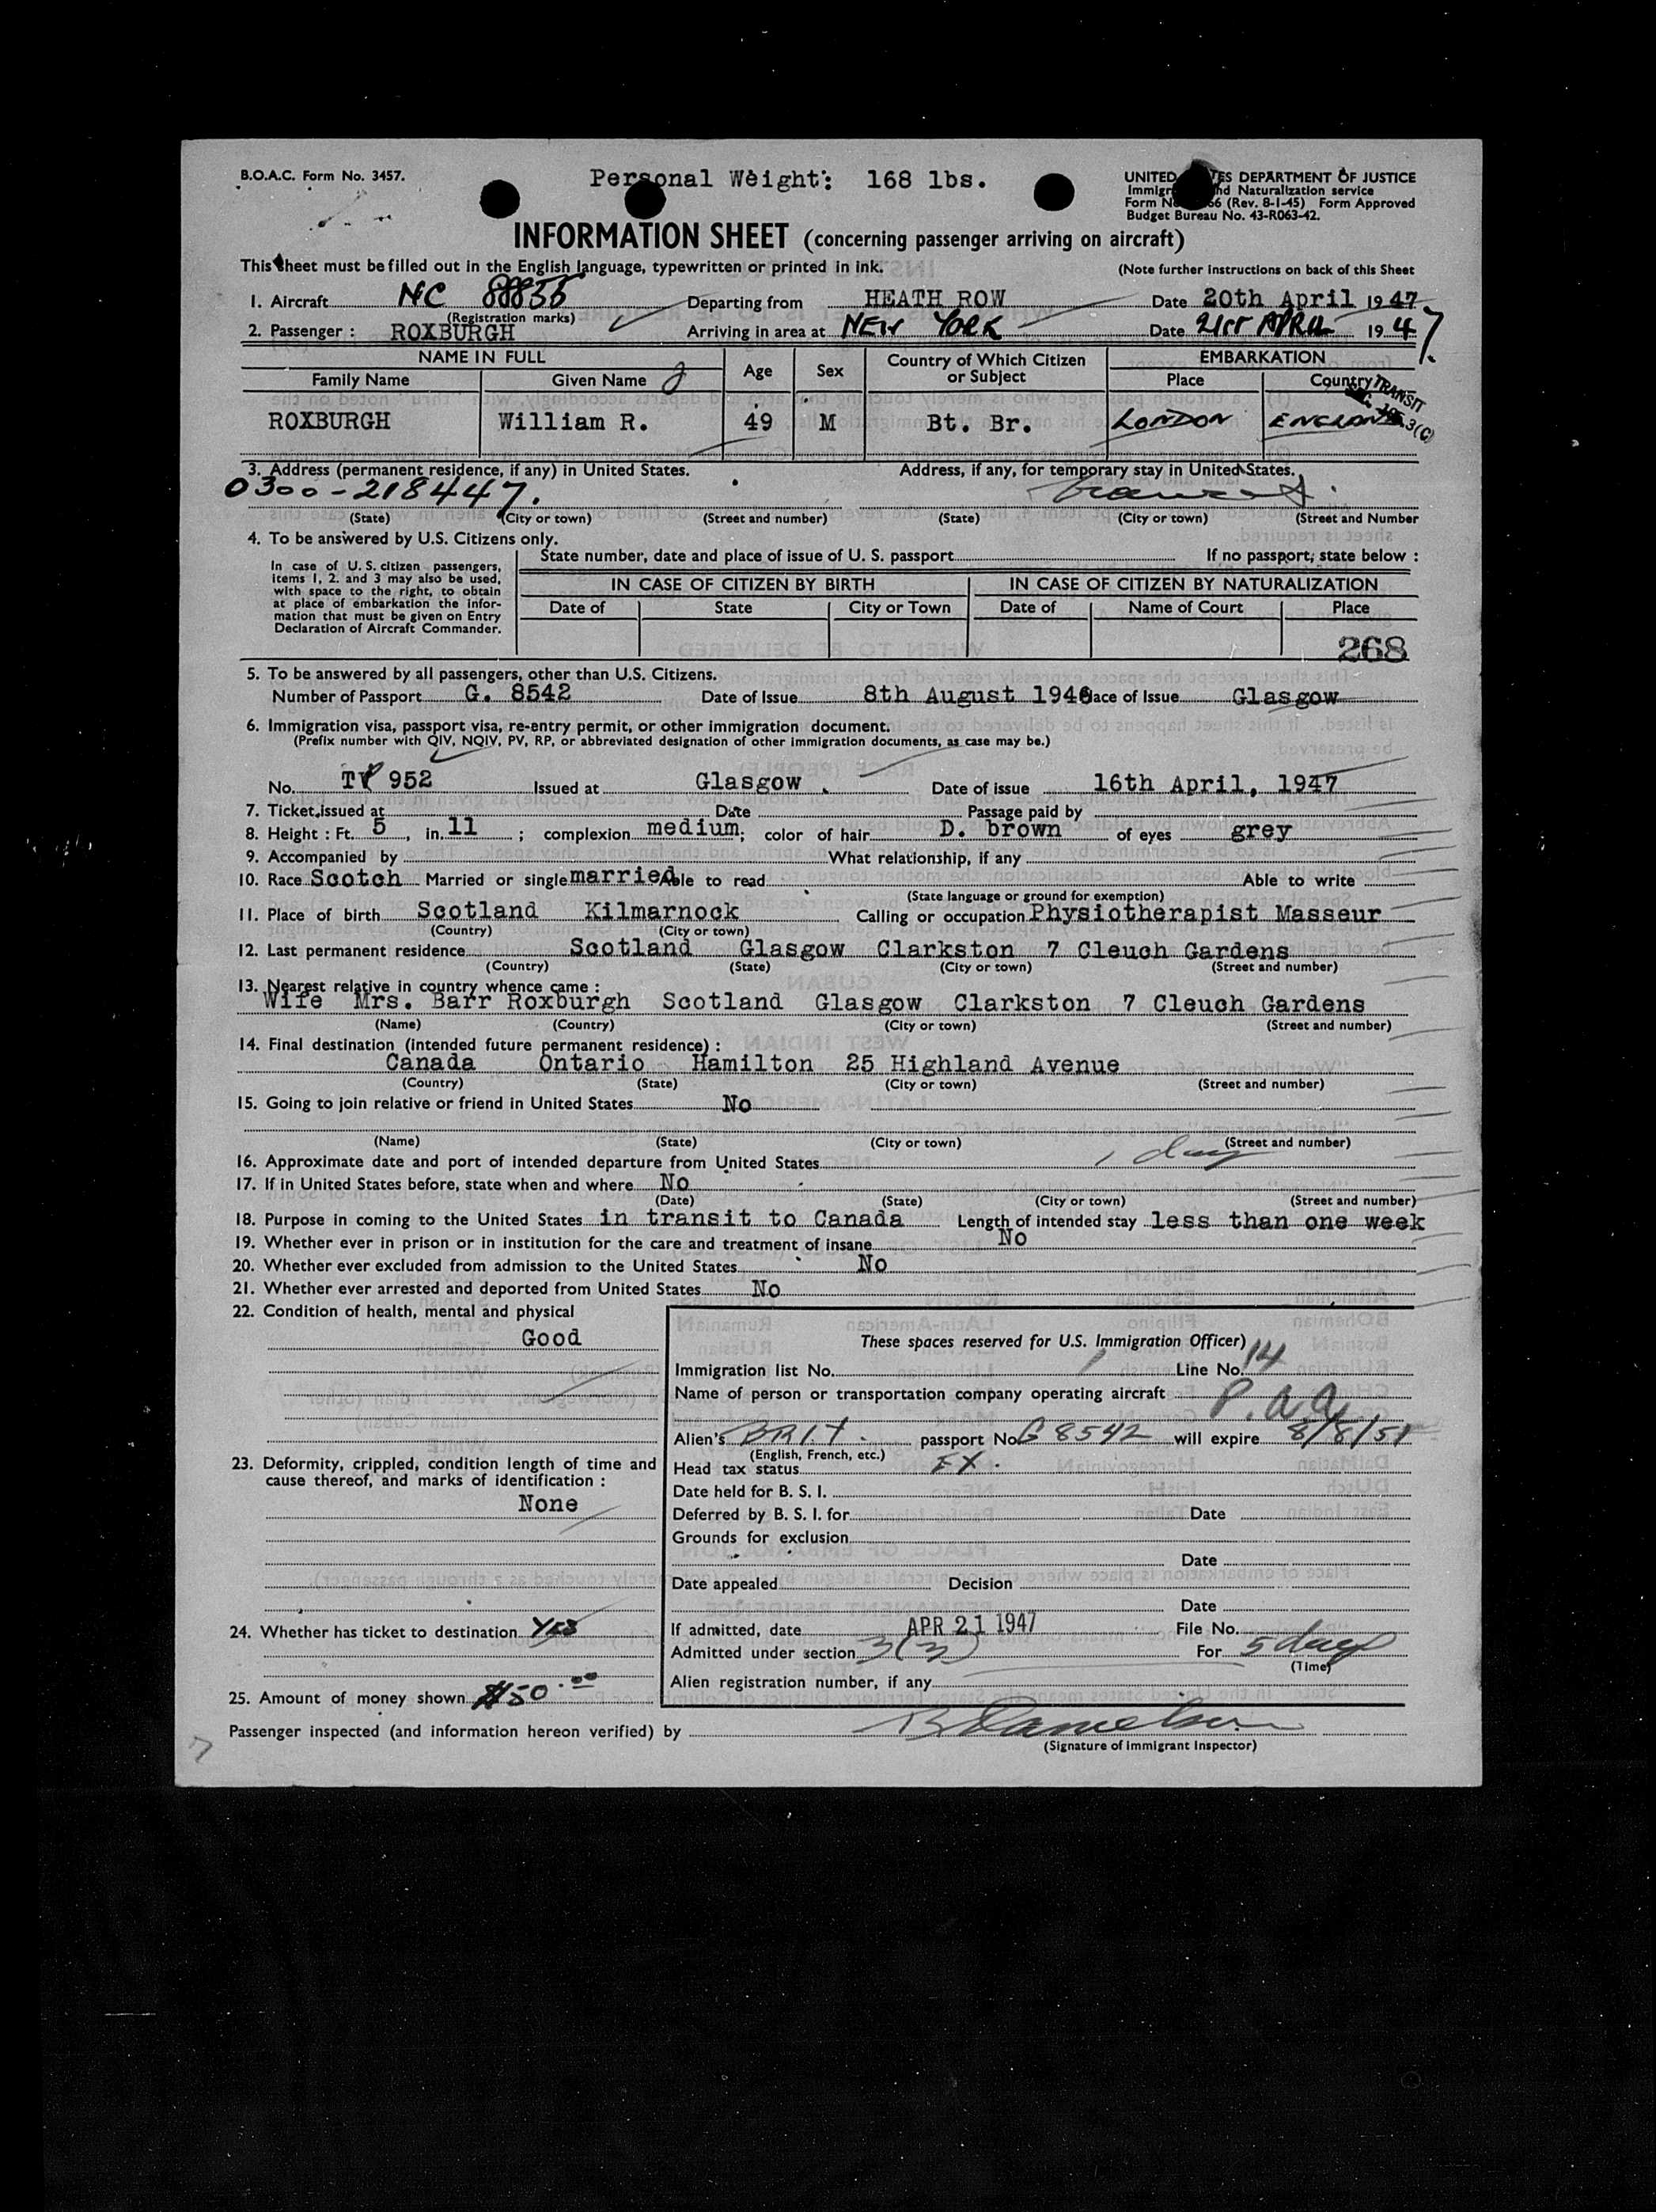 B.O.A.C. Form No. 3457.
Personal Weight: 168 lbs.
UNITED STATES DEPARTMENT OF JUSTICE
Immigr nd Naturalization service
Form N 66 (Rev. 8-1-45) Form Approved
Budget Bureau No. 43-R063-42.
INFORMATION SHEET (concerning passenger arriving on aircraft)
This sheet must be filled out in the English language, typewritten or printed in ink.
(Note further instructions on back of this Sheet
1. Aircraft NC 88855 Departing from HEATH ROW Date 20th April 1947
(Registration marks)
2. Passenger : ROXBURGH Arriving in area at NEW YORK Date 21st APRIL 1947.
NAME IN FULL Age Sex Country of Which Citizen or Subject EMBARKATION
Family Name Given Name Place Country
TRANSIT
3(C)
ROXBURGH William R. 49 M Bt. Br. LONDON ENGLAND
3. Address (permanent residence, if any) in United States. Address, if any, for temporary stay in United States.
0300-218447.
(State) (City or town) (Street and number) (State) (City or town) (Street and Number
4. To be answered by U.S. Citizens only.
State number, date and place of issue of U. S. passport If no passport, state below :
In case of U. S. citizen passengers,
items 1, 2. and 3 may also be used,
with space to the right, to obtain
at place of embarkation the infor-
mation that must be given on Entry
Declaration of Aircraft Commander.
IN CASE OF CITIZEN BY BIRTH IN CASE OF CITIZEN BY NATURALIZATION
Date of State City or Town Date of Name of Court Place
268
5. To be answered by all passengers, other than U.S. Citizens.
Number of Passport G. 8542 Date of Issue 8th August 1946 ace of Issue Glasgow
6. Immigration visa, passport visa, re-entry permit, or other immigration document.
(Prefix number with QIV, NQIV, PV, RP, or abbreviated designation of other immigration documents, as case may be.)
No. 952 Issued at Glasgow . Date of issue 16th April, 1947
7. Ticket issued at Date Passage paid by
8. Height : Ft. 5 , in. 11 ; complexion medium; color of hair D. brown of eyes grey
9. Accompanied by What relationship, if any
10. Race Scotch Married or single married Able to read Able to write
(State language or ground for exemption)
11. Place of birth Scotland Kilmarnock Calling or occupation Physiotherapist Masseur
(Country) (City or town)
12. Last permanent residence Scotland Glasgow Clarkston 7 Cleuch Gardens
(Country) (State) (City or town) (Street and number)
13. Nearest relative in country whence came :
Wife Mrs. Barr Roxburgh Scotland Glasgow Clarkston 7 Cleuch Gardens
(Name) (Country) (City or town) (Street and number)
14. Final destination (intended future permanent residence) :
Canada Ontario Hamilton 25 Highland Avenue
(Country) (State) (City or town) (Street and number)
15. Going to join relative or friend in United States No
(Name) (State) (City or town) (Street and number)
16. Approximate date and port of intended departure from United States 1 day
17. If in United States before, state when and where No
(Date) (State) (City or town) (Street and number)
18. Purpose in coming to the United States in transit to Canada Length of intended stay less than one week
19. Whether ever in prison or in institution for the care and treatment of insane No
20. Whether ever excluded from admission to the United States No
21. Whether ever arrested and deported from United States No
22. Condition of health, mental and physical
Good
23. Deformity, crippled, condition length of time and
cause thereof, and marks of identification :
None
24. Whether has ticket to destination YES
25. Amount of money shown $50.00
These spaces reserved for U.S. Immigration Officer)
Immigration list No. 1 Line No. 14
Name of person or transportation company operating aircraft P.a.a.
Alien's BRIT. passport No. G 8542 will expire 8/8/51
(English, French, etc.)
Head tax status EX.
Date held for B. S. I.
Deferred by B. S. I. for Date
Grounds for exclusion
Date
Date appealed Decision
Date
If admitted, date APR 21 1947 File No.
Admitted under section 3(3) For 5 days
(Time)
Alien registration number, if any
Passenger inspected (and information hereon verified) by
(Signature of Immigrant Inspector)